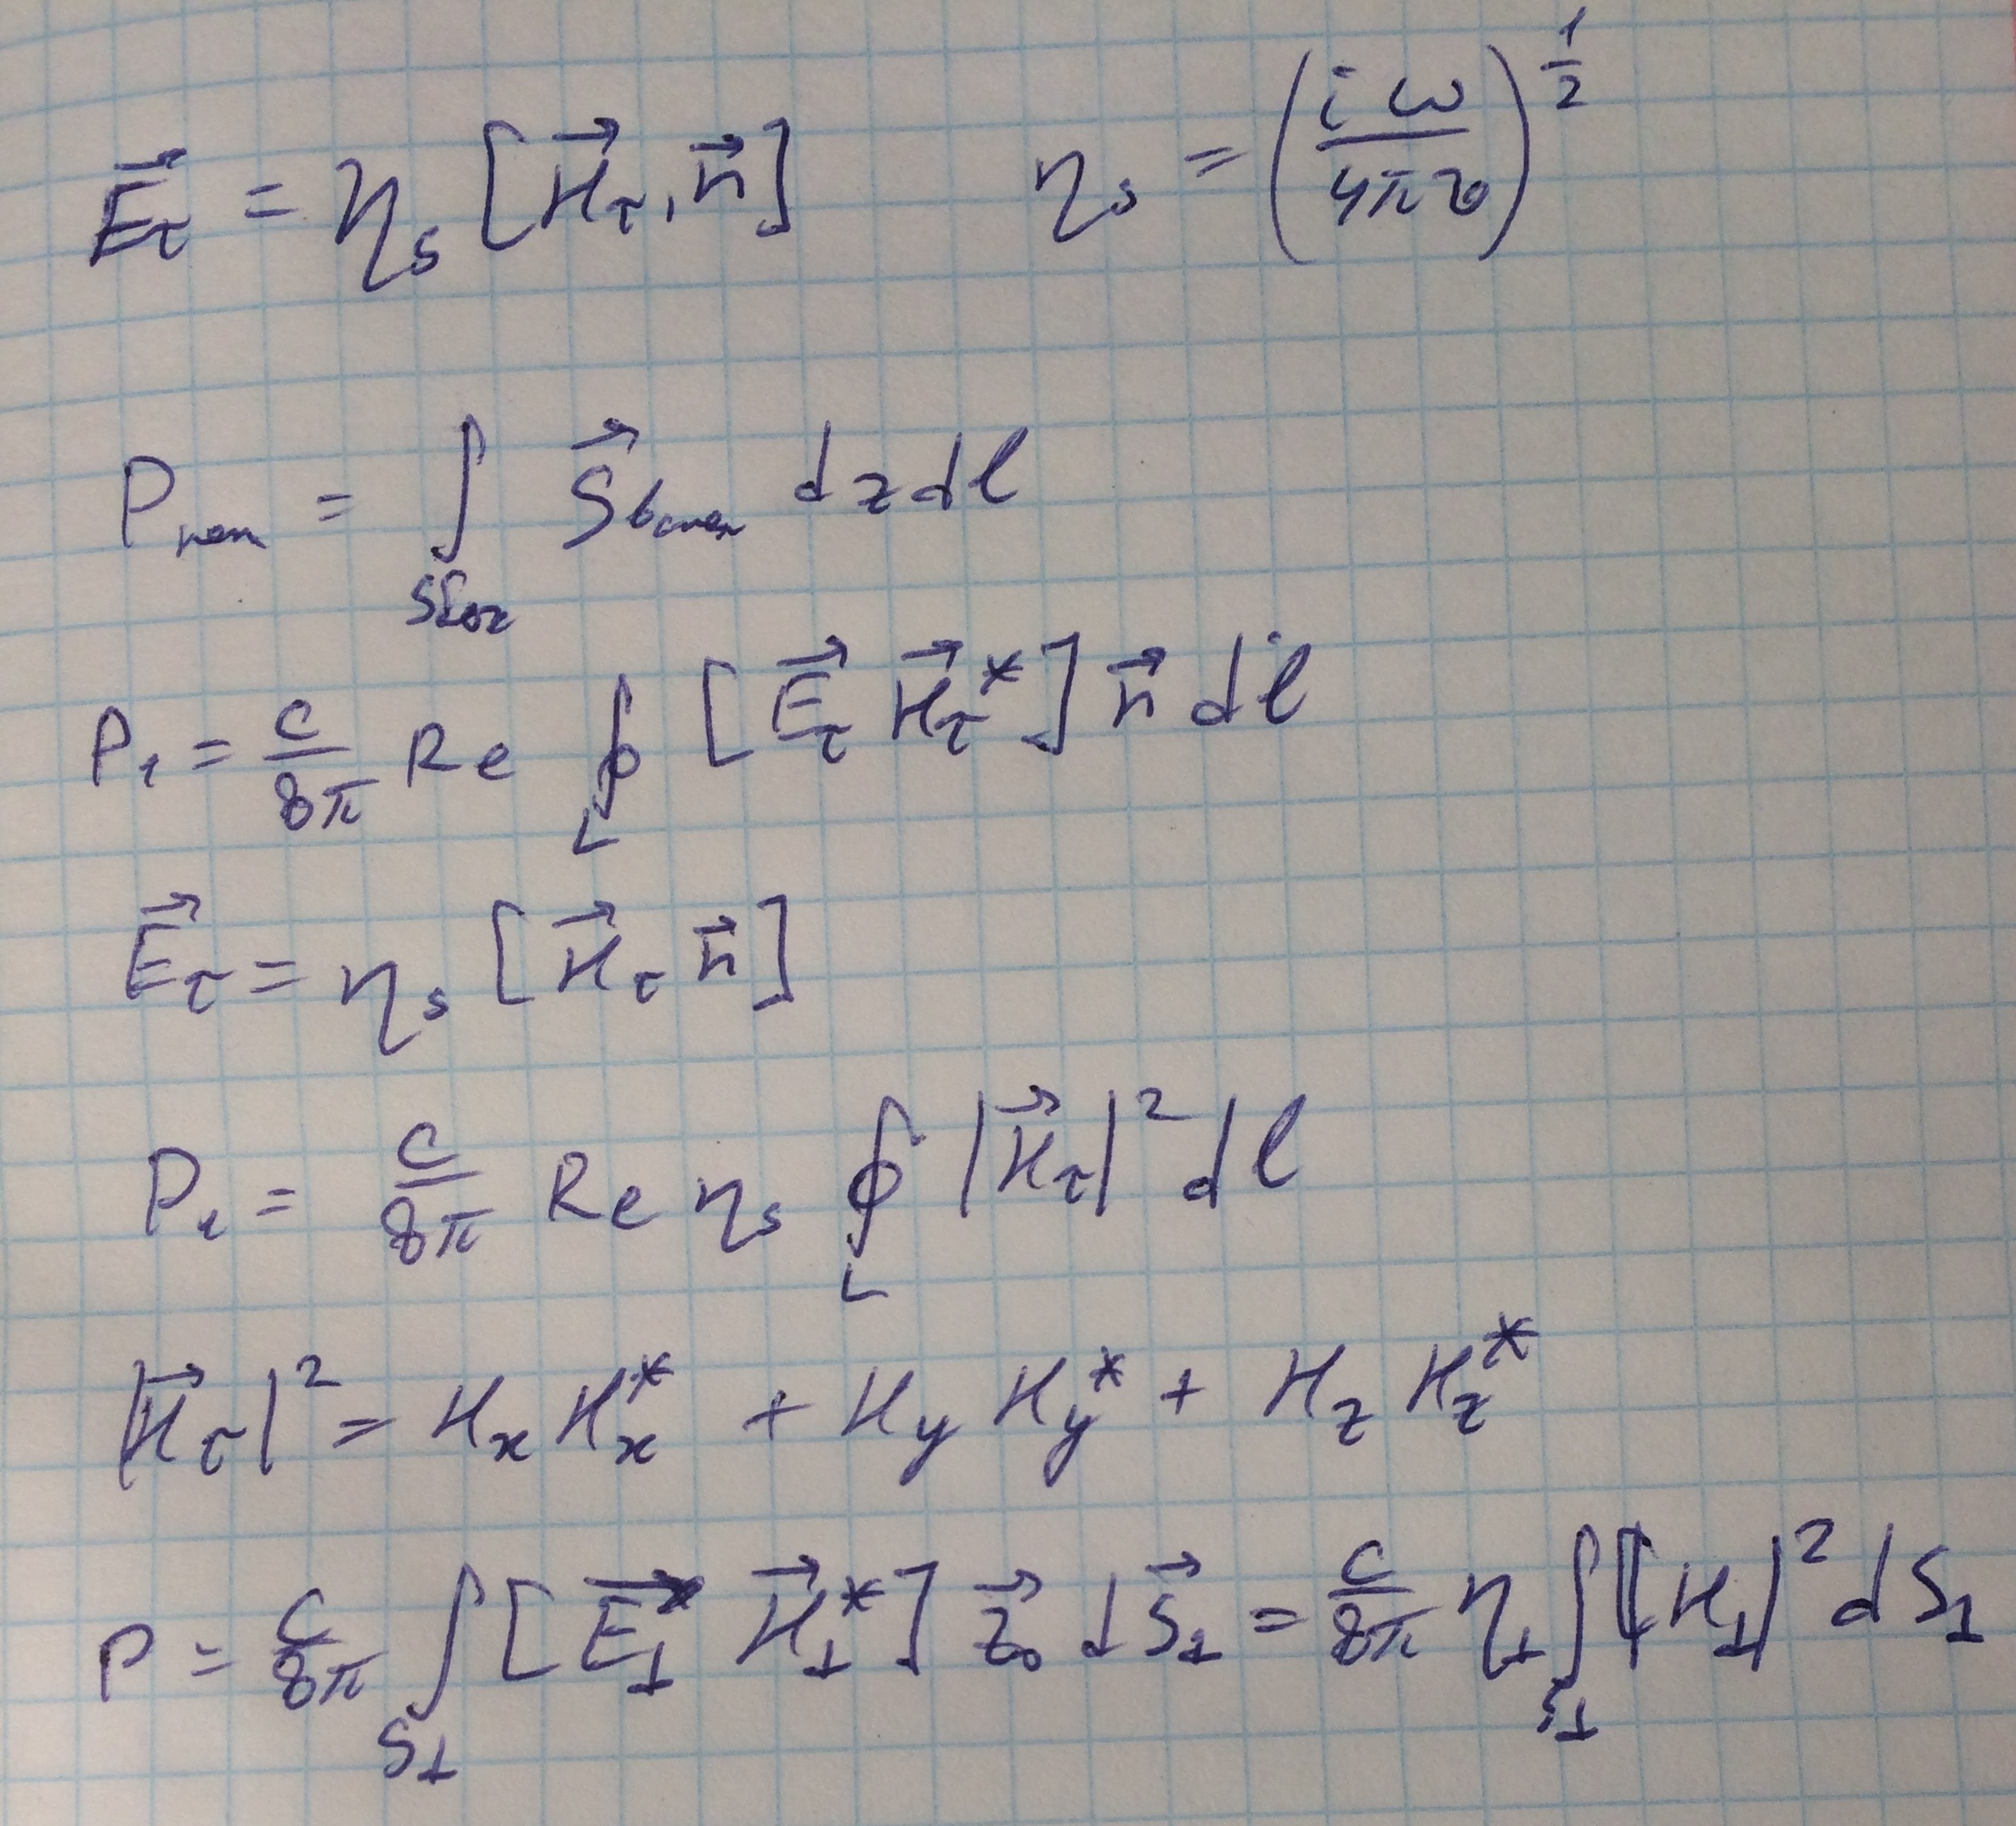 $\vec{E}_\tau = \eta_s [\vec{H}_\tau, \vec{n}] \quad \eta_s = \left(\frac{i\omega}{4\pi\sigma}\right)^{\frac{1}{2}}$
$P_{\text{пот}} = \int \vec{S} \, dz \, dl$
$P_1 = \frac{c}{8\pi} Re \oint_L [\vec{E}_\tau \vec{H}_\tau^*] \vec{n} \, dl$
$\vec{E}_\tau = \eta_s [\vec{H}_\tau \vec{n}]$
$P_1 = \frac{c}{8\pi} Re \, \eta_s \oint_L |\vec{H}_\tau|^2 dl$
$|\vec{H}_\tau|^2 = H_x H_x^* + H_y H_y^* + H_z H_z^*$
$P = \frac{c}{8\pi} \int_{S_\perp} [\vec{E}_\perp \vec{H}_\perp^*] \vec{z}_0 \, d\vec{S}_\perp = \frac{c}{8\pi} \eta_\perp \int_{S_\perp} |H_\perp|^2 dS_\perp$